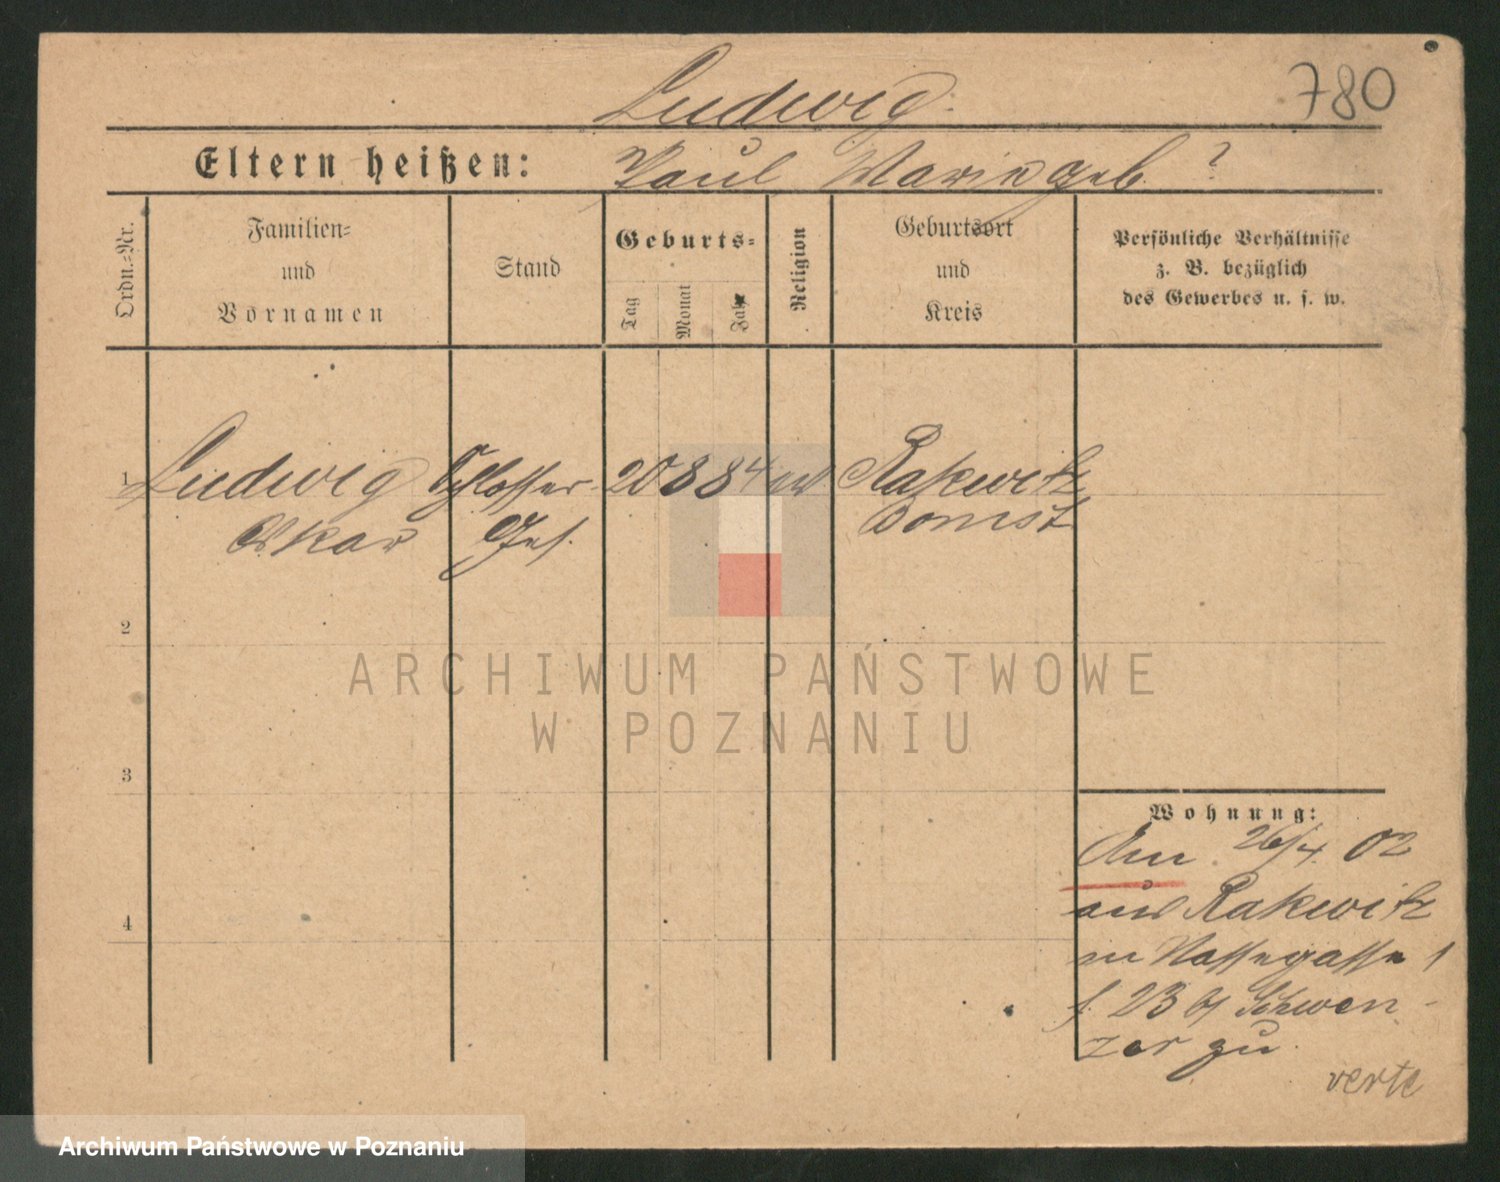 780
Ludwig.
Eltern heißen: Paul Marie geb. ?
Ordn.=Nr.
Familien=
und
Vornamen
Stand
Geburts=
Tag
Monat
Jahr
Religion
Geburtsort
und
Kreis
Persönliche Verhältnisse
z. B. bezüglich
des Gewerbes u. s. w.
1 Ludwig Schlosser 20 8 84 Rakwitz
Oskar Ges. Bomst
2
3
4
Wohnung:
Am 26/4. 02
aus Rakwitz
Nassegasse 1
f. 23 b/ Schwen-
zer zu.
verte
ARCHIWUM PAŃSTWOWE
W POZNANIU
Archiwum Państwowe w Poznaniu